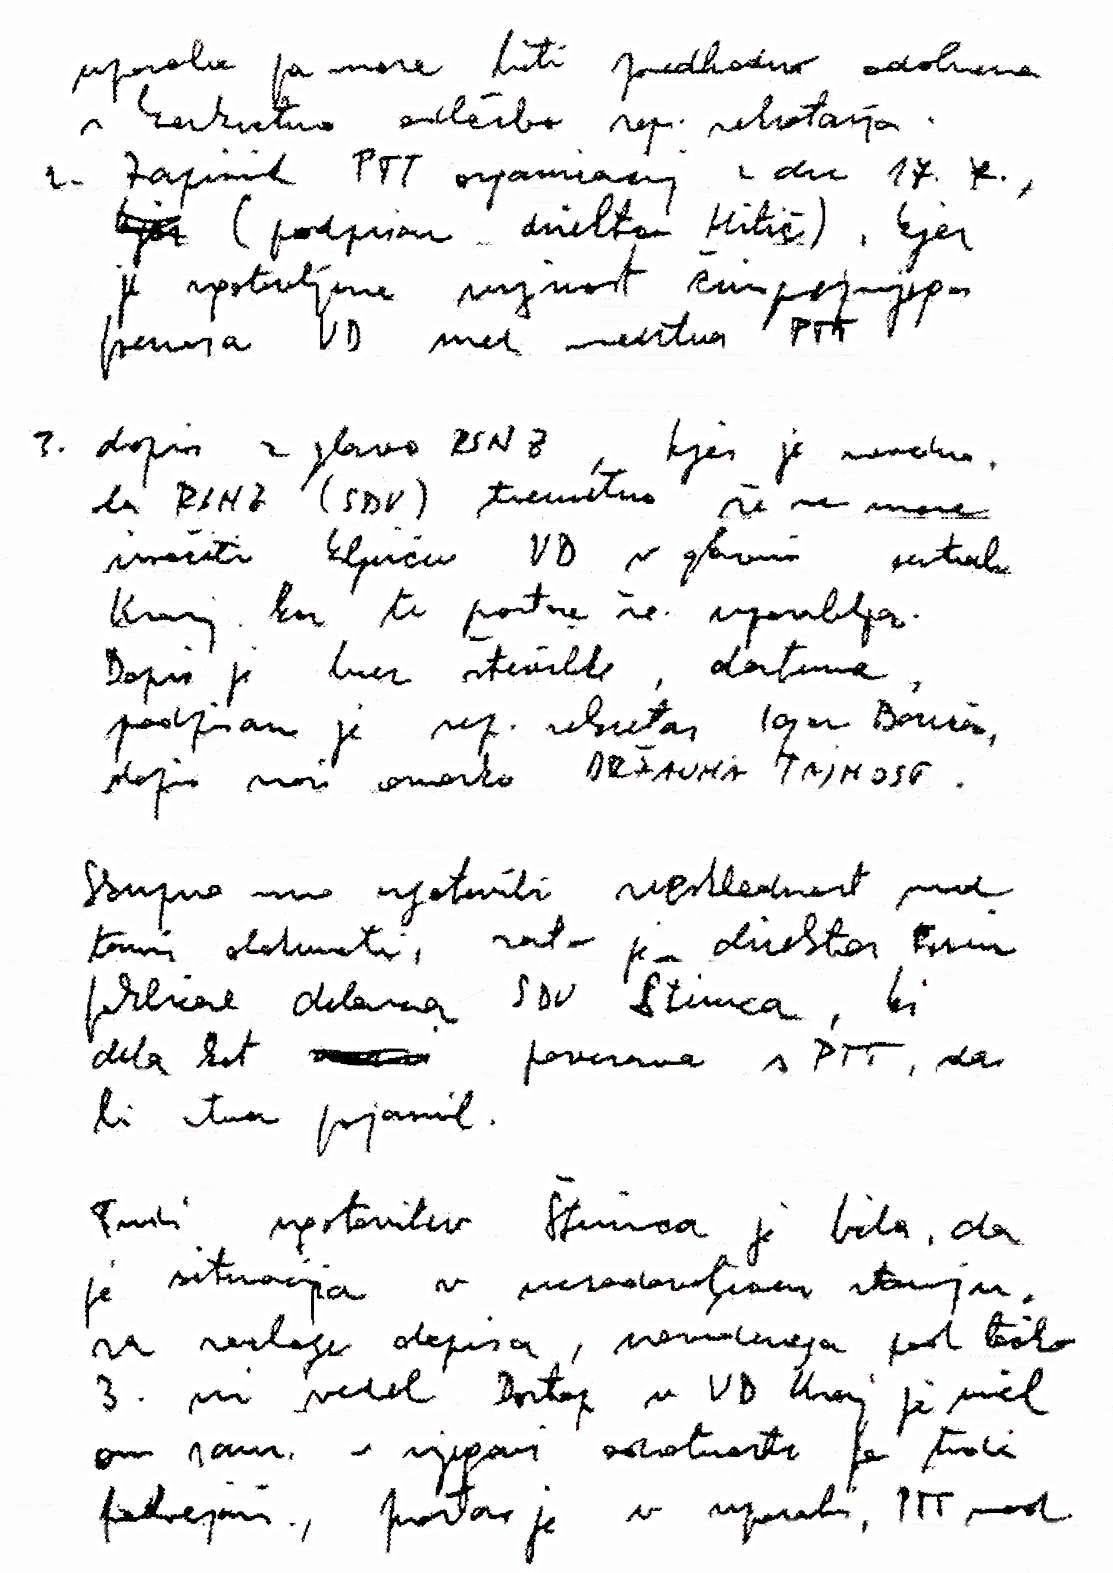 uporaba pa more biti predhodno odobrena
s konkretno odločbo rep. sekretarja.
2. Zapisnik PTT organizacij z dne 17. 7.,
(podpisan direktor Mitič), kjer
je ugotovljena nujnost čimprejšnjega
prenosa VD med sredstva PTT
3. dopis z glavo RSNZ, kjer je navedeno,
da RSNZ (SDV) trenutno še ne more
izročiti ključev VD v glavni centrali
Kranj, ker te prostore še uporablja.
Dopis je brez številke, datuma,
podpisan je rep. sekretar Igor Bavčar,
dopis nosi oznako DRŽAVNA TAJNOST.
Skupno smo ugotovili neusklajenost med
temi dokumenti, zato je direktor
poklical delavca SDV Štinca, ki
dela kot povezava s PTT, da
bi stvar pojasnil.
Tudi ugotovitev Štinca je bila, da
je situacija v nezadovoljivem stanju,
za razloge dopisa, navedenega pod točko
3. ni vedel. Dostop v VD Kranj je imel
on sam, v njegovi odsotnosti pa tudi
, prostor je v uporabi, PTT nad